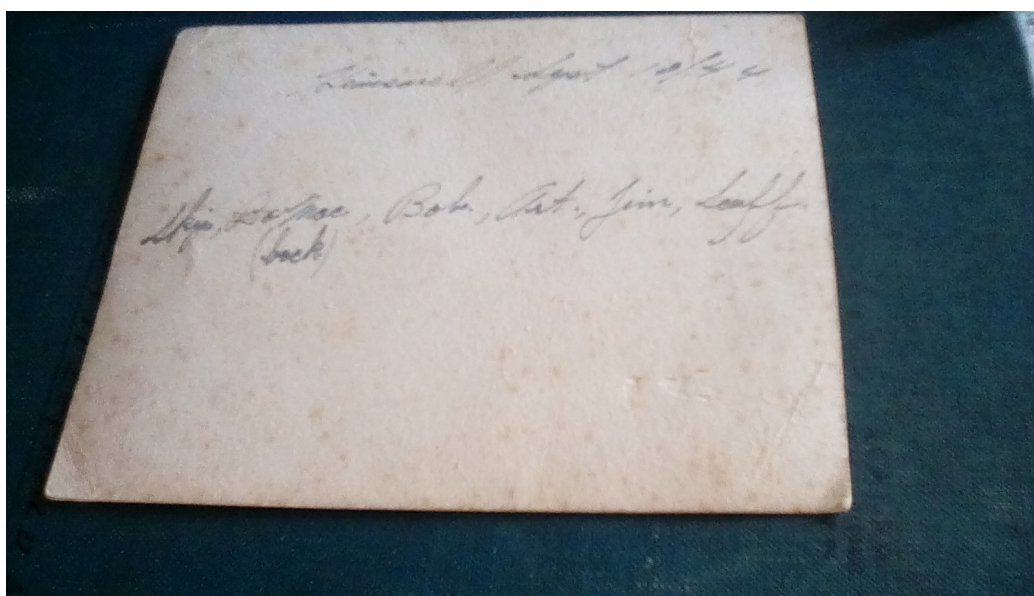 Sept 1944
Skip, , Bob., Art., Jim, Scaff.
(back)